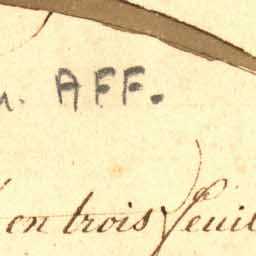 AFF.
en trois feuil